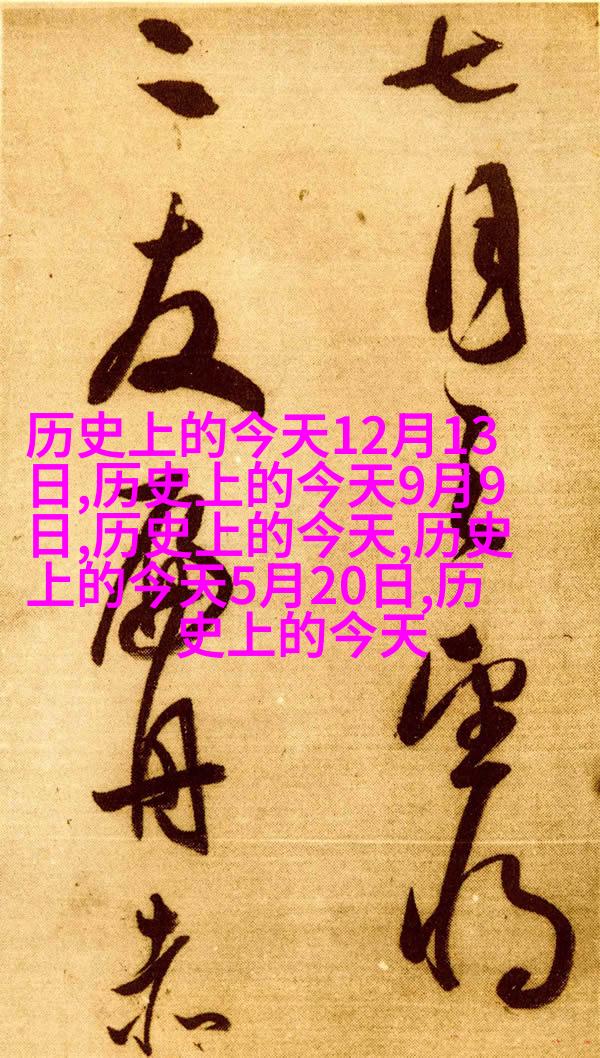 七月之望將
二友舟赤
历史上的今天12月13
日,历史上的今天9月9
日,历史上的今天,历史
上的今天5月20日,历
史上的今天